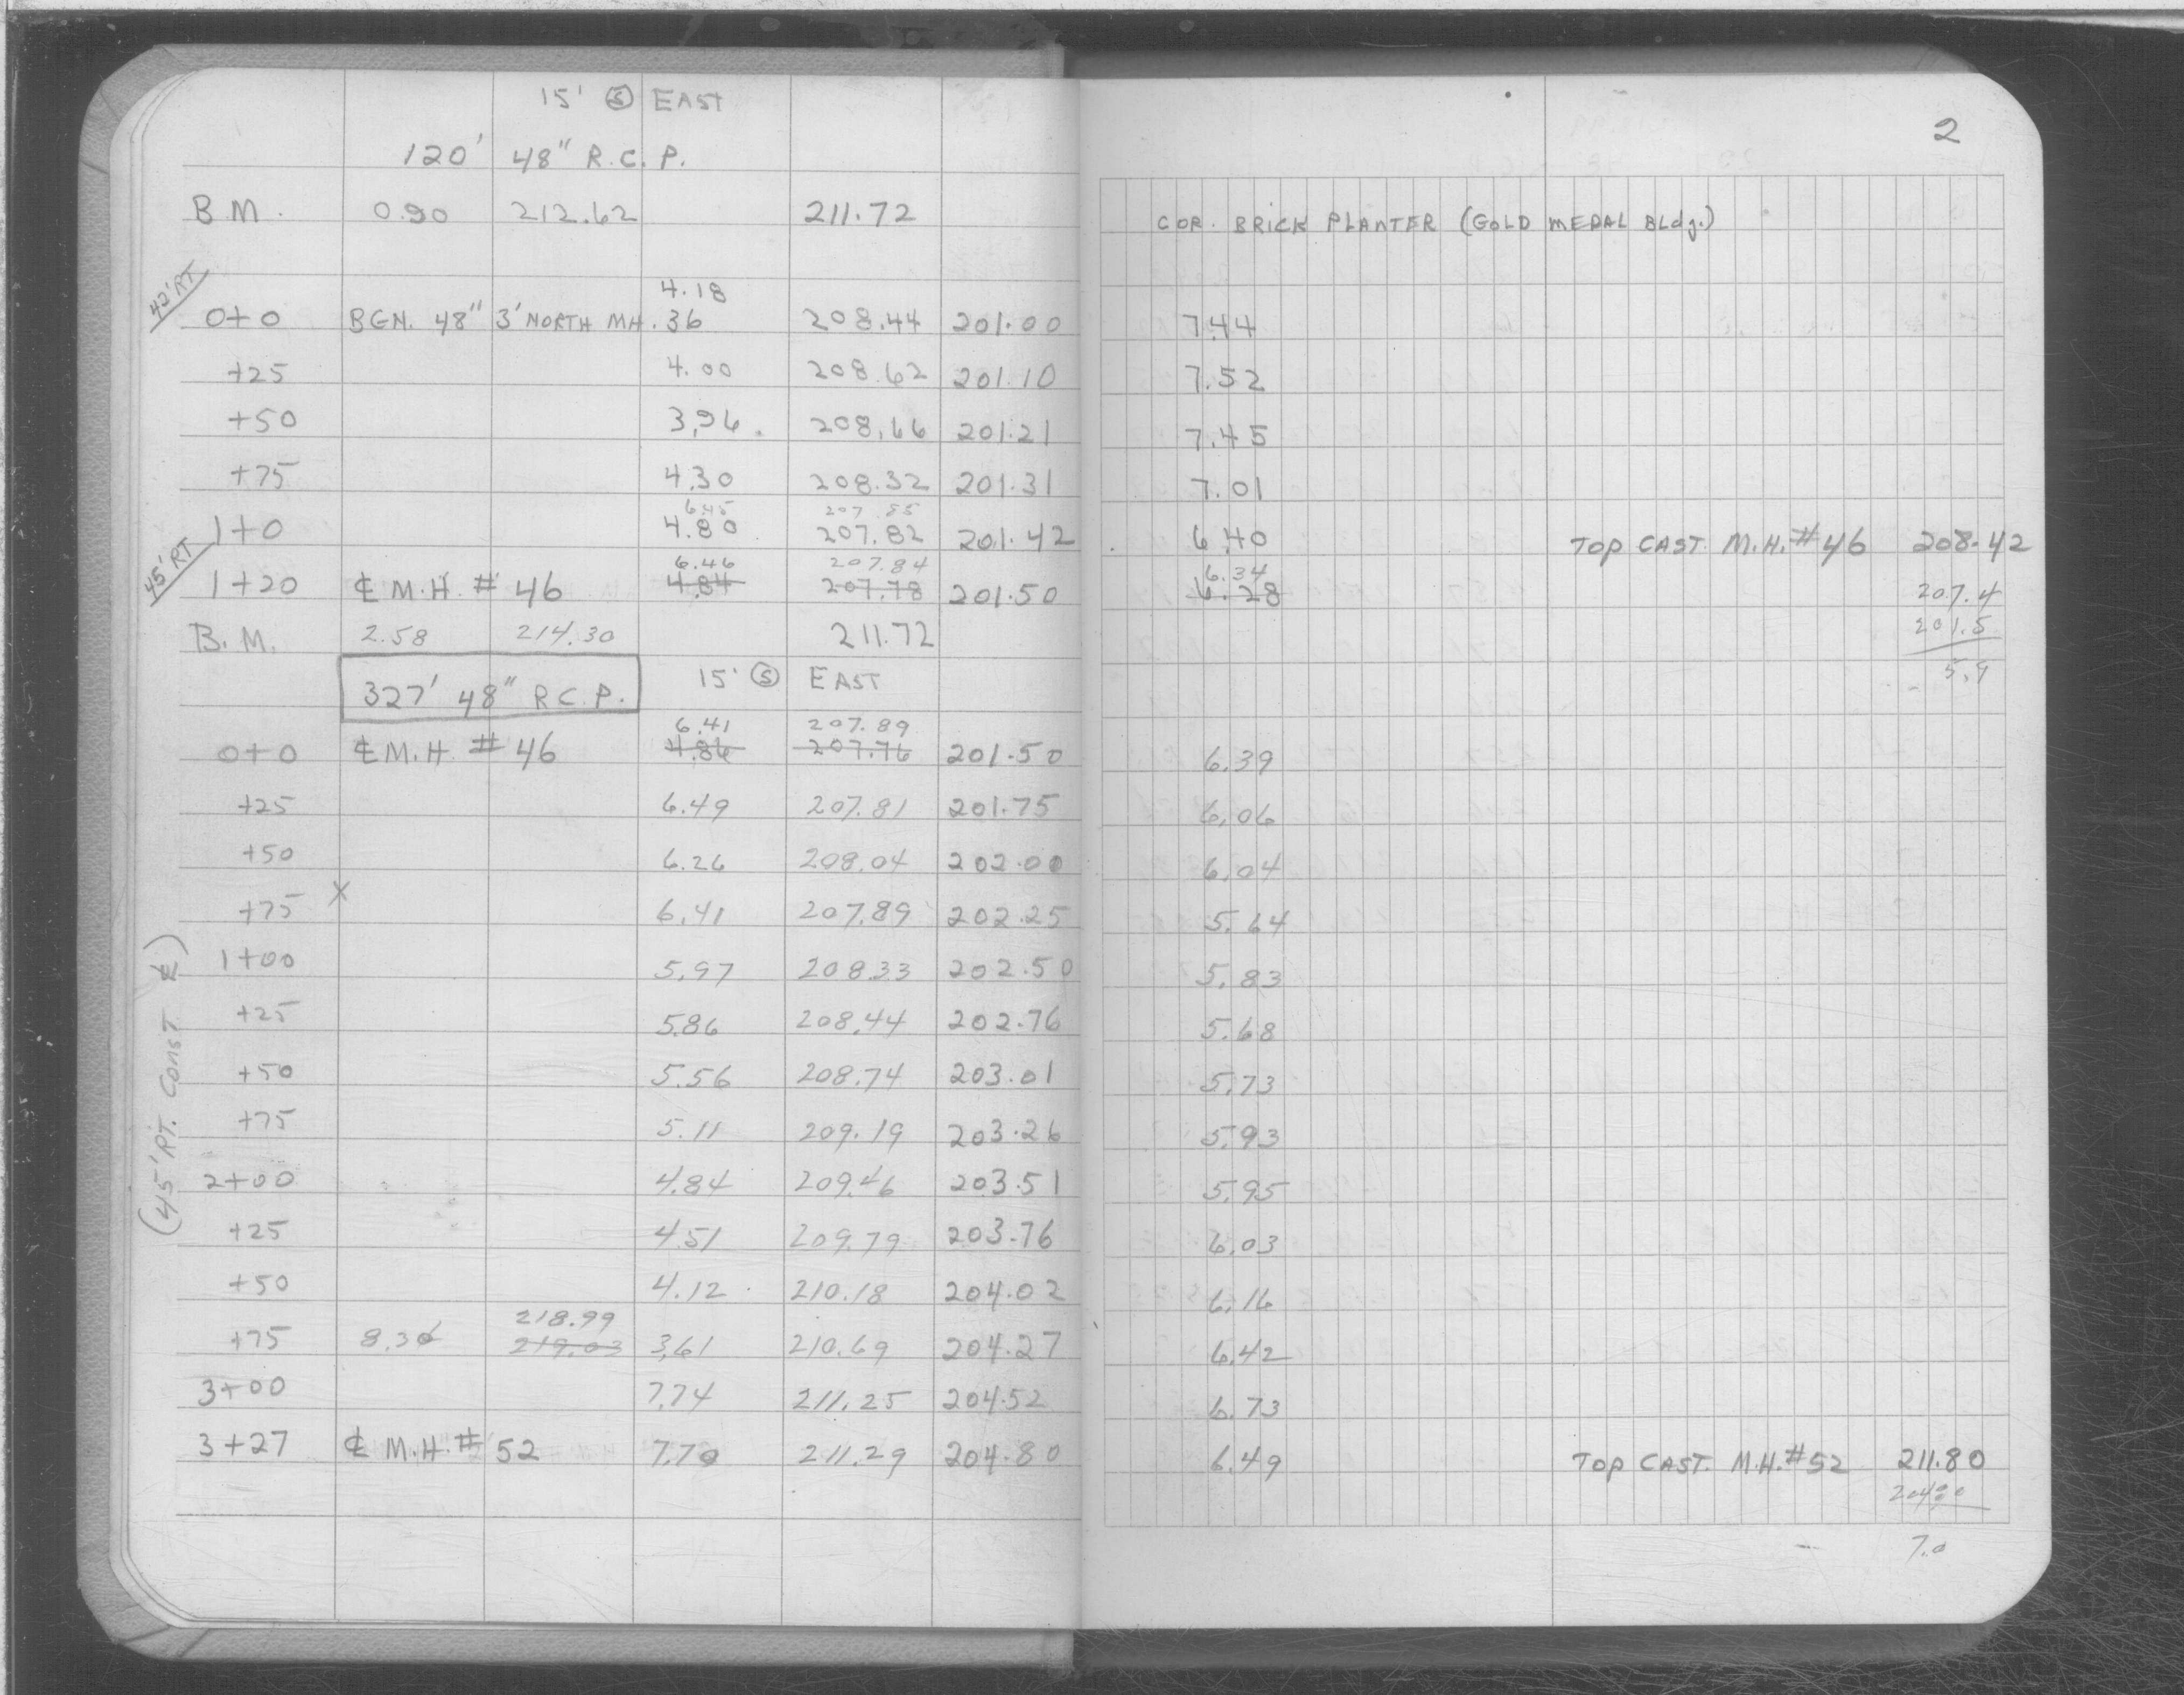 15' Ⓢ EAST
2
120' 48" R.C.P.
B.M. 0.90 212.62 211.72 COR. BRICK PLANTER (GOLD MEDAL Bldg.)
42' RT
4.18
0+0 BGN. 48" 3' NORTH MH. 36 208.44 201.00 7.44
+25 4.00 208.62 201.10 7.52
+50 3.96 208.66 201.21 7.45
+75 4.30 208.32 201.31 7.01
6.45 207.85
1+0 4.80 207.82 201.42 6.40 TOP CAST. M.H. #46 208.42
45' RT
6.46 207.84 6.34
1+20 ℄ M.H. # 46 4.84 207.78 201.50 6.28 207.4
B.M. 2.58 214.30 211.72 201.5
5.9
327' 48" R.C.P. 15' Ⓢ EAST
6.41 207.89
0+0 ℄ M.H. # 46 4.86 207.76 201.50 6.39
+25 6.49 207.81 201.75 6.06
+50 6.26 208.04 202.00 6.04
+75 X 6.41 207.89 202.25 5.64
(45' RT. CONST ℄)
1+00 5.97 208.33 202.50 5.83
+25 5.86 208.44 202.76 5.68
+50 5.56 208.74 203.01 5.73
+75 5.11 209.19 203.26 5.93
2+00 4.84 209.46 203.51 5.95
+25 4.51 209.79 203.76 6.03
+50 4.12 210.18 204.02 6.16
218.99
+75 8.30 219.03 3.61 210.69 204.27 6.42
3+00 7.74 211.25 204.52 6.73
3+27 ℄ M.H. # 52 7.70 211.29 204.80 6.49 TOP CAST. M.H. #52 211.80
204.80
7.0